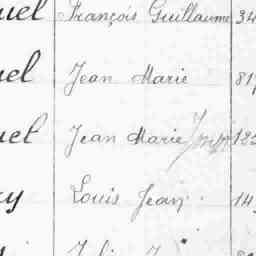 uel François Guillaume 34
uel Jean Marie 81
uel Jean Marie 185
ey Louis Jean 14